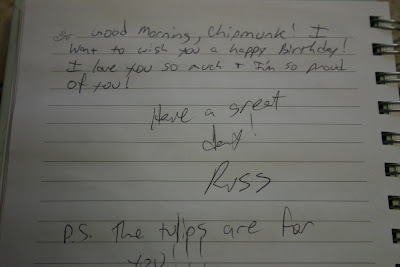 Good Morning, Chipmunk! I
Want to wish you a happy Birthday!
I love you so much + I'm so proud
of you!
Have a great
day!
Russ
P.S. The tulips are for
you!!!